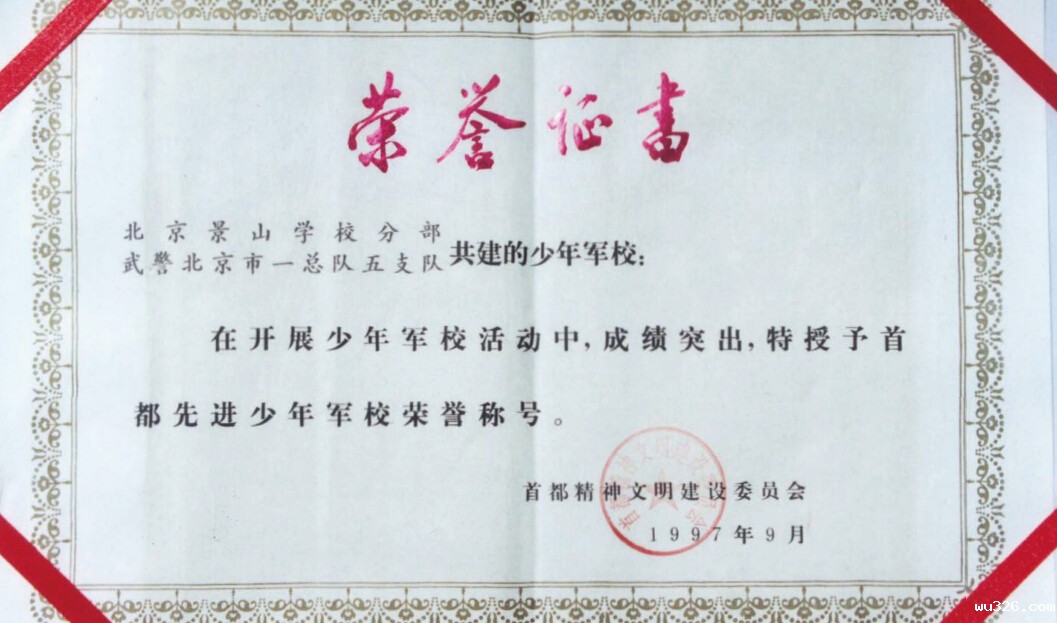 荣誉证书
北京景山学校分部
武警北京市一总队五支队共建的少年军校:
在开展少年军校活动中,成绩突出,特授予首
都先进少年军校荣誉称号。
首都精神文明建设委员会
首都精神文明建设委员会
1997年9月
wu326.com